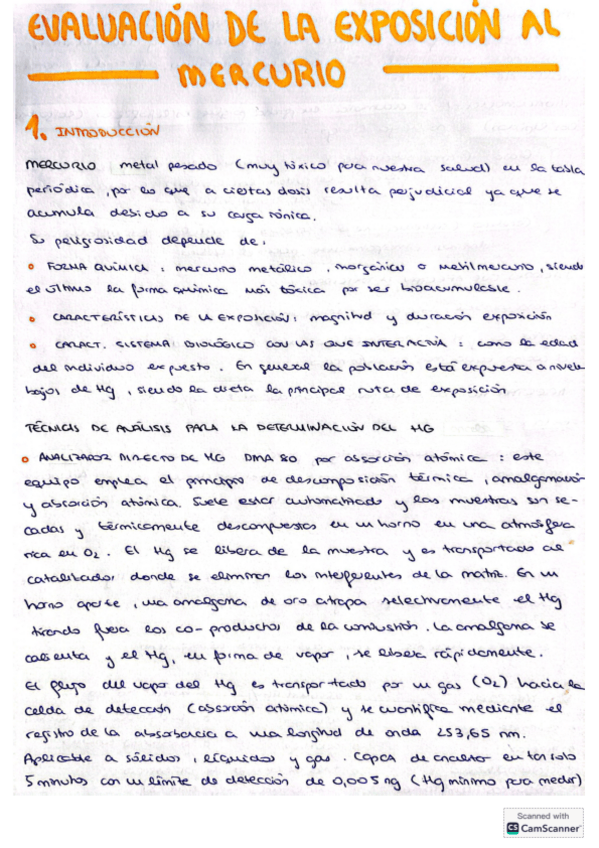 EVALUACIÓN DE LA EXPOSICIÓN AL
MERCURIO
1. INTRODUCCIÓN
MERCURIO metal pesado (muy tóxico para nuestra salud) en la tabla
periódica, por lo que a ciertas dosis resulta perjudicial ya que se
acumula debido a su carga iónica.
Su peligrosidad depende de:
• FORMA QUÍMICA: mercurio metálico, inorgánico o metilmercurio, siendo
el último la forma química más tóxica por ser bioacumulable.
• CARACTERÍSTICAS DE LA EXPOSICIÓN: magnitud y duración exposición
• CARACT. SISTEMA BIOLÓGICO CON LAS QUE INTERACTÚA: como la edad
del individuo expuesto. En general la población está expuesta a niveles
bajos de Hg, siendo la dieta la principal ruta de exposición
TÉCNICAS DE ANÁLISIS PARA LA DETERMINACIÓN DEL HG
• ANALIZADOR DIRECTO DE HG DMA 80 por absorción atómica: este
equipo emplea el principio de descomposición térmica, amalgamación
y absorción atómica. Suele estar automatizado y las muestras son se-
cadas y térmicamente descompuestas en un horno en una atmósfera
rica en O2. El Hg se libera de la muestra y es transportado al
catalizador donde se eliminan los interferentes de la matriz. En un
horno aparte, una amalgama de oro atrapa selectivamente el Hg
tirando fuera los co-productos de la combustión. La amalgama se
calienta y el Hg, en forma de vapor, se libera rápidamente.
El flujo del vapor del Hg es transportado por un gas (O2) hacia la
celda de detección (absorción atómica) y se cuantifica mediante el
registro de la absorbancia a una longitud de onda 253,65 nm.
Aplicable a sólidos, líquidos y gas. Capaz de analizar en tan solo
5 minutos con un límite de detección de 0,005 ng (Hg mínimo para medir)
Scanned with
CS CamScanner